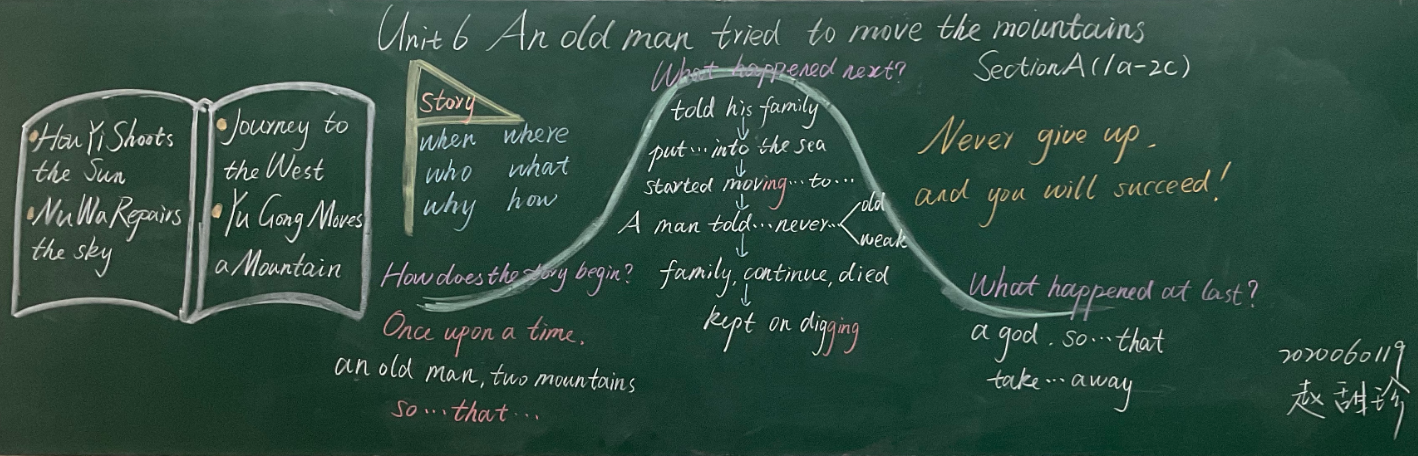 Unit 6 An old man tried to move the mountains
Section A (1a-2c)
Hou Yi Shoots
the Sun
Nu Wa Repairs
the sky
Journey to
the West
Yu Gong Moves
a Mountain
story
when where
who what
why how
How does the story begin?
Once upon a time,
an old man, two mountains
so...that...
What happened next?
told his family
↓
put...into the sea
↓
started moving...to...
↓
A man told...never...
old
weak
↓
family, continue, died
↓
kept on digging
Never give up,
and you will succeed!
What happened at last?
a god, so...that
take...away
2020060119
赵甜珍